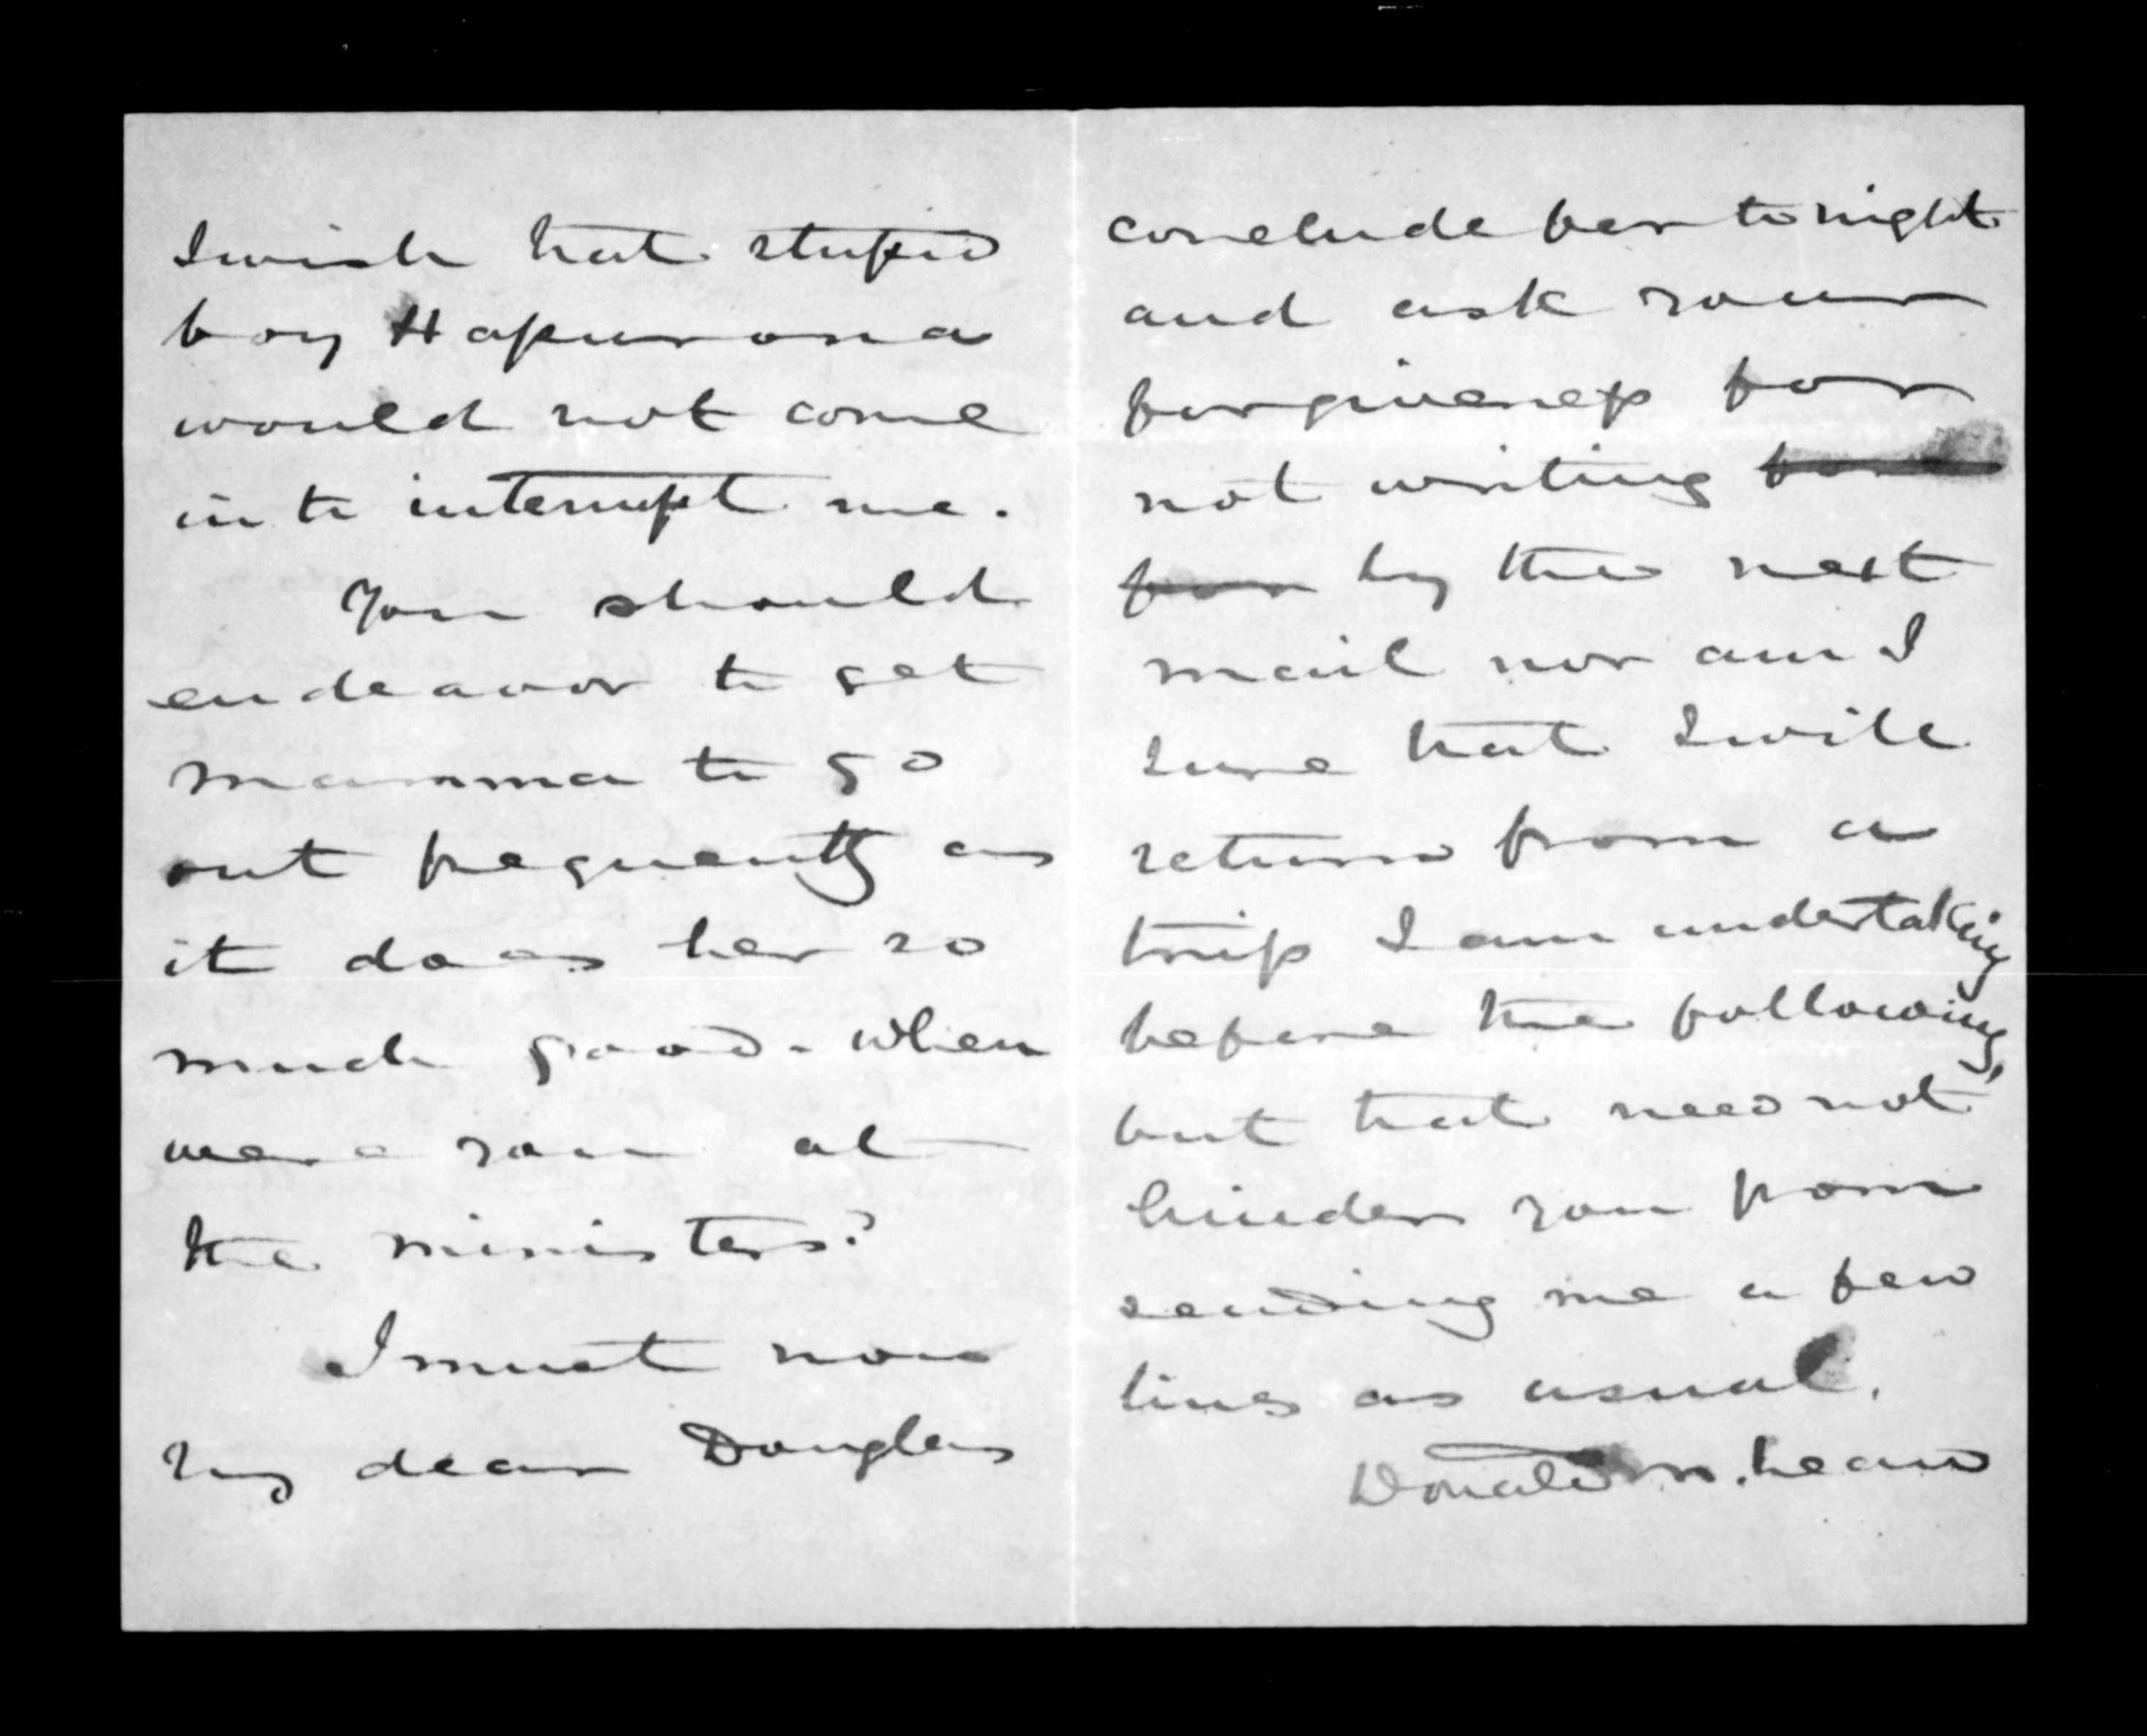 I wish that stupid
boy Hapurona
would not come
in to interrupt me.
You should
endeavor to get
mamma to go
out frequently as
it does her so
much good. When
were you at
the ministers?
I must now
my dear Douglas
conclude for to night
and ask your
forgiveness for
not writing for
for by the next
mail nor am I
sure that I will
return from a
trip I am undertaking
before the following,
but that need not
hinder you from
sending me a few
lines as usual.
Donald McLean